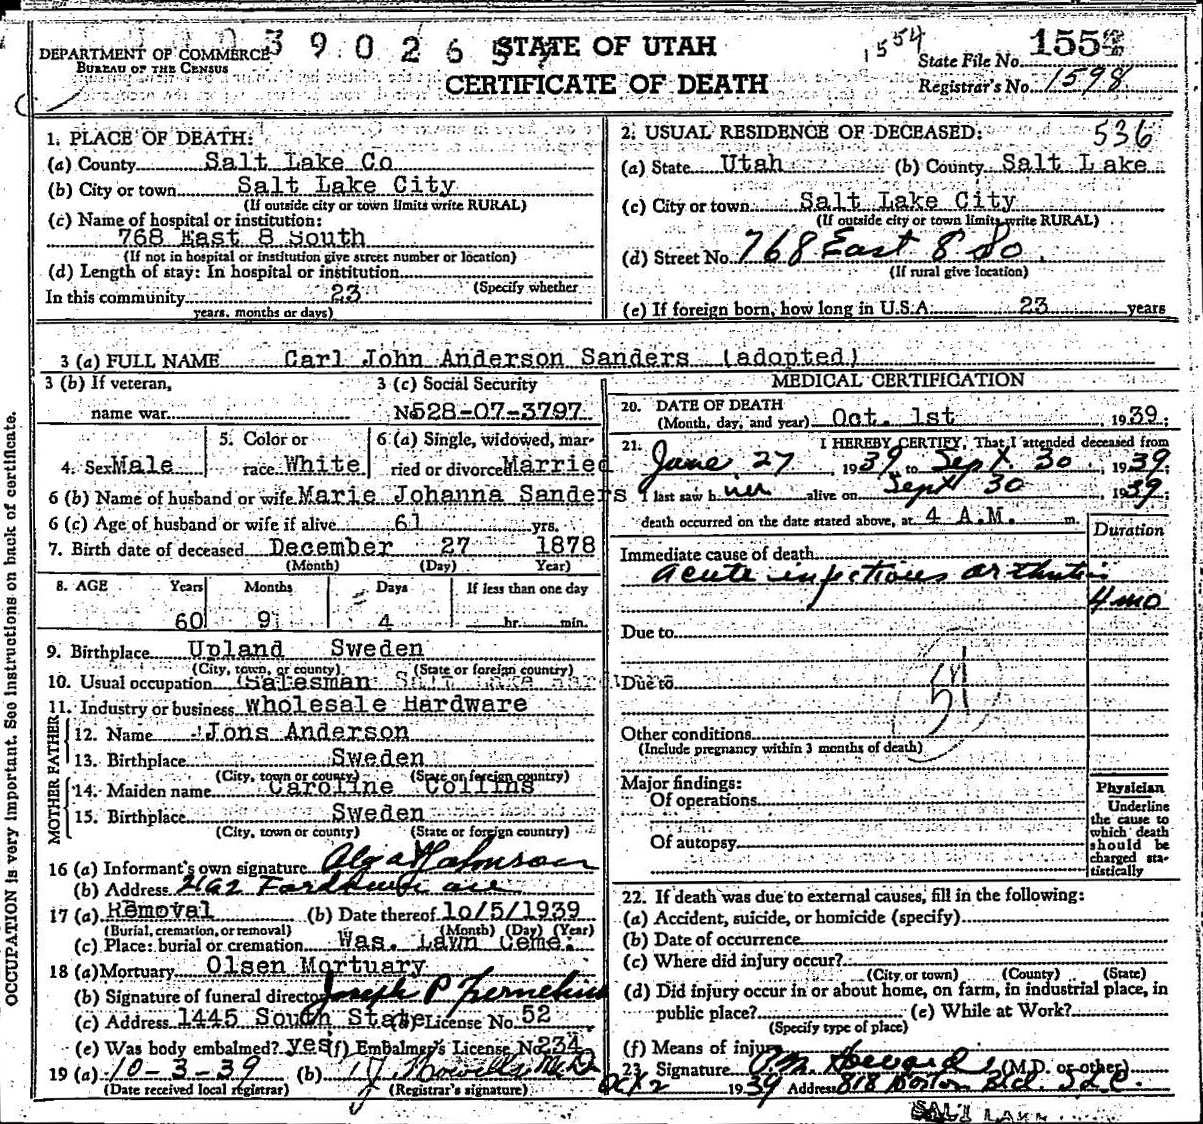 DEPARTMENT OF COMMERCE
BUREAU OF THE CENSUS
39026
STATE OF UTAH
CERTIFICATE OF DEATH
1554
State File No. 155
Registrar's No. 1598
1. PLACE OF DEATH:
(a) County Salt Lake Co
(b) City or town Salt Lake City
(If outside city or town limits write RURAL)
(c) Name of hospital or institution:
768 East 8 South
(If not in hospital or institution give street number or location)
(d) Length of stay: In hospital or institution
(Specify whether
In this community 23
years, months or days)
2. USUAL RESIDENCE OF DECEASED: 536
(a) State Utah (b) County Salt Lake
(c) City or town Salt Lake City
(If outside city or town limits write RURAL)
(d) Street No. 768 East 8 So.
(If rural give location)
(e) If foreign born, how long in U.S.A. 23 years
3 (a) FULL NAME Carl John Anderson Sanders (adopted)
3 (b) If veteran,
name war
3 (c) Social Security
No 528-07-3797
4. Sex Male
5. Color or
race White
6 (a) Single, widowed, mar-
ried or divorced Married
6 (b) Name of husband or wife Marie Johanna Sanders
6 (c) Age of husband or wife if alive 61 yrs.
7. Birth date of deceased December 27 1878
(Month) (Day) Year)
8. AGE Years Months Days If less than one day
60 9 4 hr. min.
9. Birthplace Upland Sweden
(City, town, or county) (State or foreign country)
10. Usual occupation Salesman
11. Industry or business Wholesale Hardware
FATHER
12. Name Jons Anderson
13. Birthplace Sweden
(City, town or county) (State or foreign country)
MOTHER
14. Maiden name Caroline Collins
15. Birthplace Sweden
(City, town or county) (State or foreign country)
16 (a) Informant's own signature
(b) Address
17 (a) Removal (b) Date thereof 10/5/1939
(Burial, cremation, or removal) (Month) (Day) (Year)
(c) Place: burial or cremation Was. Lawn Ceme.
18 (a) Mortuary Olsen Mortuary
(b) Signature of funeral director Joseph P
(c) Address 1445 South State (d) License No. 52
(e) Was body embalmed? yes (f) Embalmer's License No 234
19 (a) 10-3-39 (b) M.D.
(Date received local registrar) (Registrar's signature)
MEDICAL CERTIFICATION
20. DATE OF DEATH
(Month, day, and year) Oct. 1st 1939;
21. I HEREBY CERTIFY, That I attended deceased from
June 27 1939, to Sept. 30, 1939
I last saw him alive on Sept 30 1939;
death occurred on the date stated above, at 4 A.M. m.
Duration
Immediate cause of death
Acute infectious arthritis
4 mo
Due to
Due to
Other conditions
(Include pregnancy within 3 months of death)
Major findings:
Of operations
Of autopsy
Physician
Underline
the cause to
which death
should be
charged sta-
tistically
22. If death was due to external causes, fill in the following:
(a) Accident, suicide, or homicide (specify)
(b) Date of occurrence
(c) Where did injury occur?
(City or town) (County) (State)
(d) Did injury occur in or about home, on farm, in industrial place, in
public place? (e) While at Work?
(Specify type of place)
(f) Means of injury
23 Signature (M.D. or other)
Oct 2 1939 Address 818 Boston Bld. S.L.C.
SALT LAKE
OCCUPATION is very important. See instructions on back of certificate.